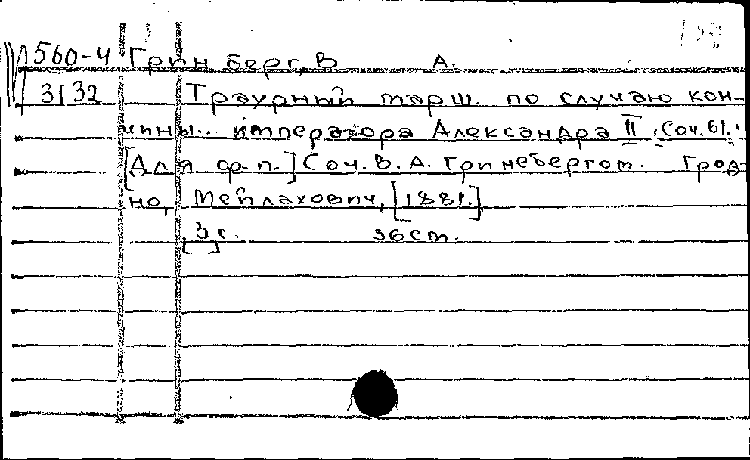 560-4 Гринберг, В А.
3132 Траурный марш по случаю кон-
чины.. императора Александра II. Соч. 61.
[Для ф-п.] Соч. В. А. Гринебергом. Грод-
но, Мейлахович, [1881].
[3] с. 36 см.